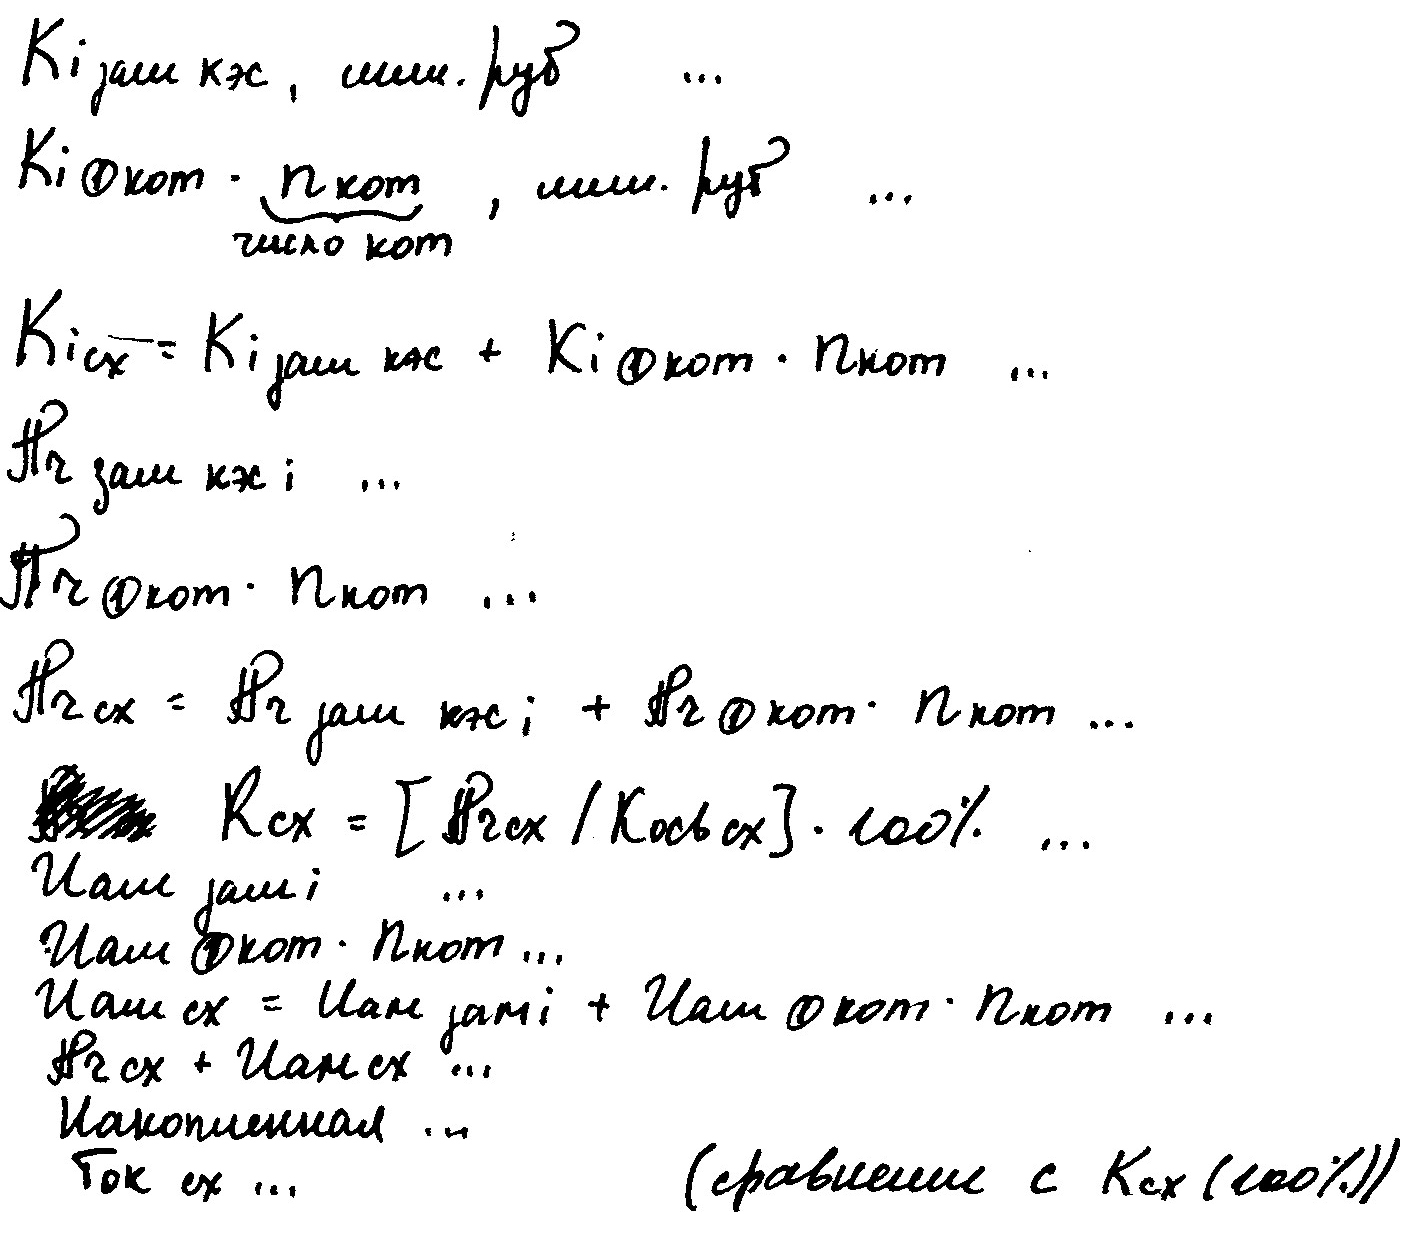 Ki зам кэс, млн. руб ...
Ki ①кот · n кот, млн. руб ...
число кот
Ki сх = Ki зам кэс + Ki ①кот · n кот ...
Пч зам кэс i ...
Пч ①кот · n кот ...
Пч сх = Пч зам кэс i + Пч ①кот · n кот ...
R сх = [Пч сх / K осв сх] · 100% ...
Иам зам i ...
Иам ①кот · n кот ...
Иам сх = Иам зам i + Иам ①кот · n кот ...
Пч сх + Иам сх ...
Накопленная ...
Ток сх ... (сравнение с K сх (100%))